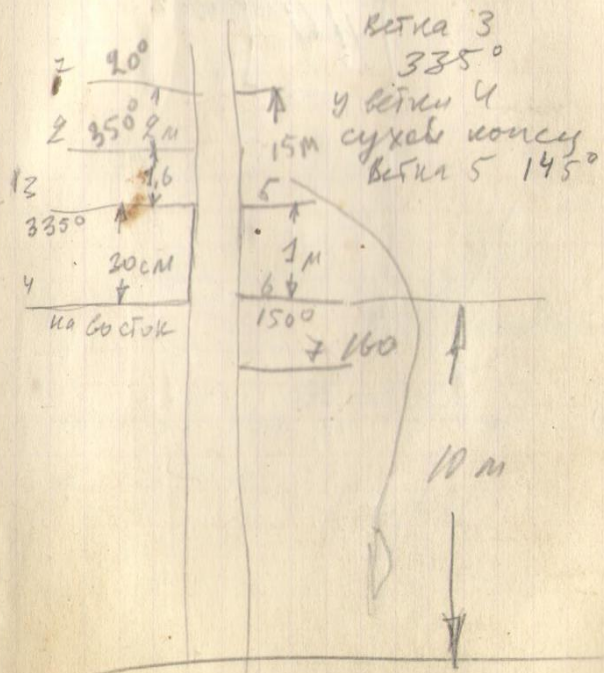 Ветка 3
335°
у ветки 4
сухой конец
Ветка 5 145°
1 20°
2 350° 2м
15м
1,6
3
335°
5
30см
1м
4
на восток
6
150°
7 160
10 м